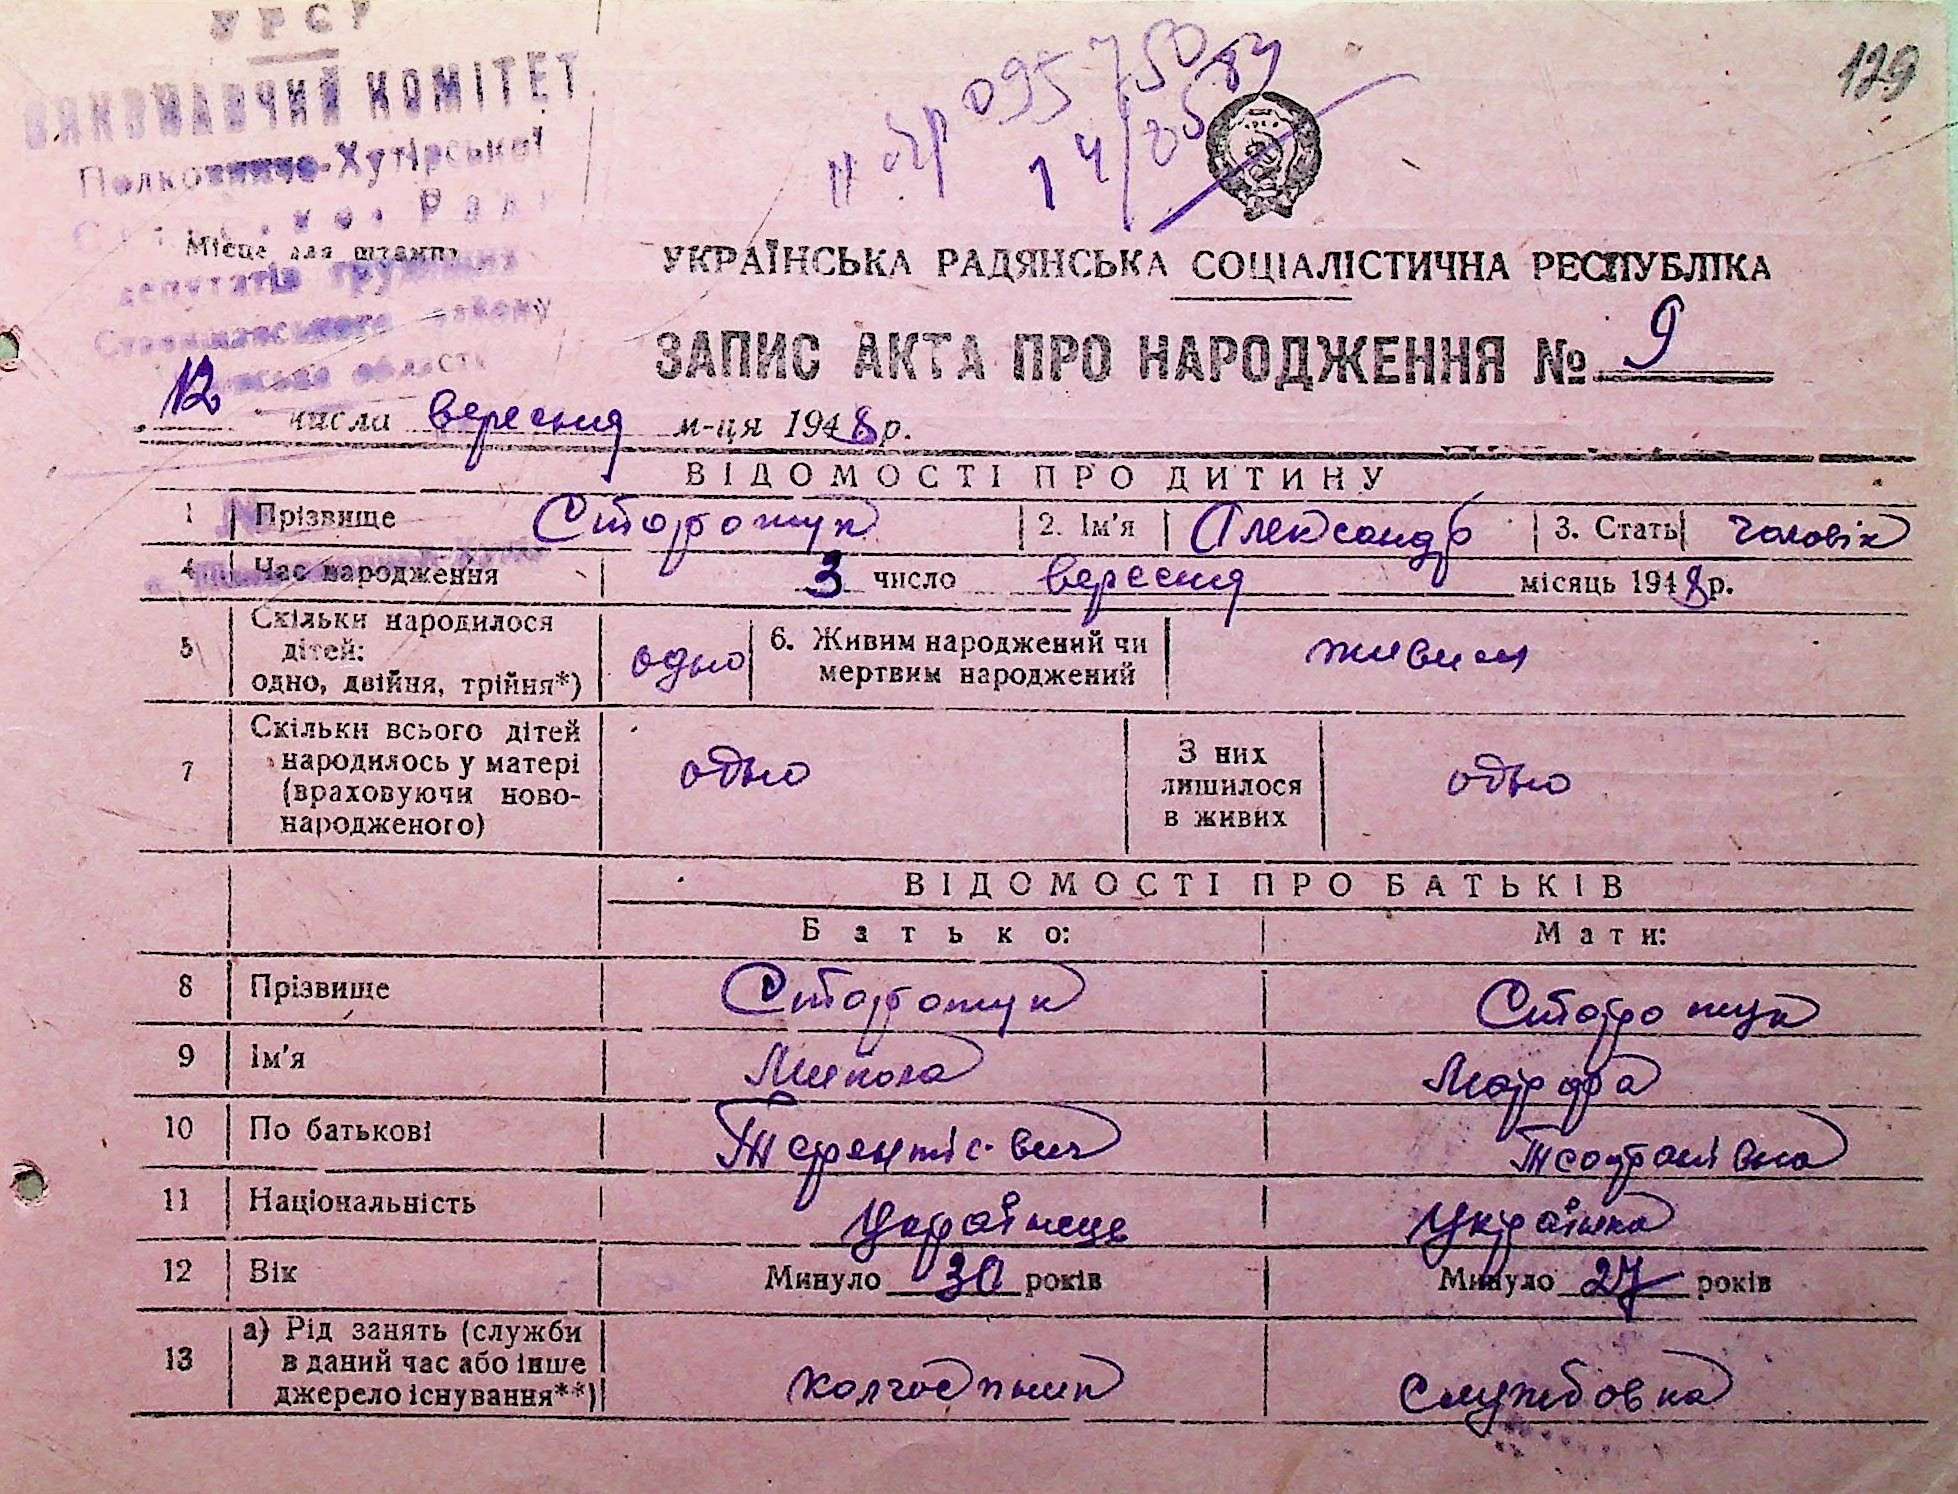 УРСР
129
ВИКОНАВЧИЙ КОМІТЕТ
Полковниче-Хутірської
095750
14/
Місце для штампу
депутатів трудящих
Ставищанського району
області
УКРАЇНСЬКА РАДЯНСЬКА СОЦІАЛІСТИЧНА РЕСПУБЛІКА
ЗАПИС АКТА ПРО НАРОДЖЕННЯ № 9
12 числа вересня м-ця 1948 р.
ВІДОМОСТІ ПРО ДИТИНУ
1 Прізвище Сторожук 2. Ім'я Александр 3. Стать чоловік
4 Час народження 3 число вересня місяць 1948 р.
5 Скільки народилося дітей: одно, двійня, трійня*) одно 6. Живим народжений чи мертвим народжений живим
7 Скільки всього дітей народилось у матері (враховуючи новонародженого) одно З них лишилося в живих одно
ВІДОМОСТІ ПРО БАТЬКІВ
Батько: Мати:
8 Прізвище Сторожук Сторожук
9 Ім'я Микола Марфа
10 По батькові Терентієвич
11 Національність Українець Українка
12 Вік Минуло 30 років Минуло 27 років
13 а) Рід занять (служби в даний час або інше джерело існування**) колгоспник Службовка